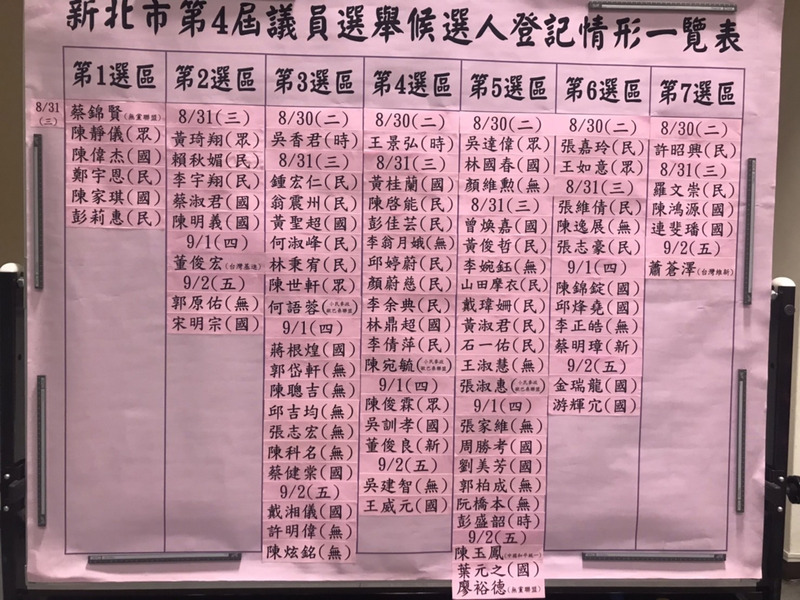 新北市第4屆議員選舉候選人登記情形一覽表
第1選區
8/31(三)
蔡錦賢(無黨聯盟)
陳靜儀(眾)
陳偉杰(國)
鄭宇恩(民)
陳家琪(國)
彭莉惠(民)
第2選區
8/31(三)
黃琦翔(眾)
賴秋媚(民)
李宇翔(民)
蔡淑君(國)
陳明義(國)
9/1(四)
董俊宏(台灣基進)
9/2(五)
郭原佑(無)
宋明宗(國)
第3選區
8/30(二)
吳香君(時)
8/31(三)
鍾宏仁(民)
翁震州(民)
黃聖超(國)
何淑峰(民)
林秉宥(民)
陳世軒(眾)
何語蓉(小民參政歐巴桑聯盟)
9/1(四)
蔣根煌(國)
郭岱軒(無)
陳聰吉(無)
邱吉均(無)
張志宏(無)
陳科名(無)
蔡健棠(國)
9/2(五)
戴湘儀(國)
許明偉(無)
陳炫銘(無)
第4選區
8/30(二)
王景弘(時)
8/31(三)
黃桂蘭(國)
陳啓能(民)
彭佳芸(民)
李翁月娥(無)
邱婷蔚(民)
顏蔚慈(民)
李余典(民)
林鼎超(國)
李倩萍(民)
陳宛毓(小民參政歐巴桑聯盟)
9/1(四)
陳俊霖(眾)
吳訓孝(國)
董俊良(新)
9/2(五)
吳建智(無)
王威元(國)
第5選區
8/30(二)
吳達偉(眾)
林國春(國)
顏維勲(無)
8/31(三)
曾煥嘉(國)
黃俊哲(民)
李婉鈺(無)
山田摩衣(民)
戴瑋姍(民)
黃淑君(民)
石一佑(民)
王淑慧(無)
張淑惠(小民參政歐巴桑聯盟)
9/1(四)
張家維(無)
周勝考(國)
劉美芳(國)
郭柏成(無)
阮橋本(無)
彭盛韶(時)
9/2(五)
陳玉鳳(中國和平統一)
葉元之(國)
廖裕德(無黨聯盟)
第6選區
8/30(二)
張嘉玲(民)
王如意(眾)
8/31(三)
張維倩(民)
陳逸展(無)
張志豪(民)
9/1(四)
陳錦錠(國)
邱烽堯(國)
李正皓(無)
蔡明璋(新)
9/2(五)
金瑞龍(國)
游輝宂(國)
第7選區
8/30(二)
許昭興(民)
8/31(三)
羅文崇(民)
陳鴻源(國)
連斐璠(國)
9/2(五)
蕭蒼澤(台灣維新)